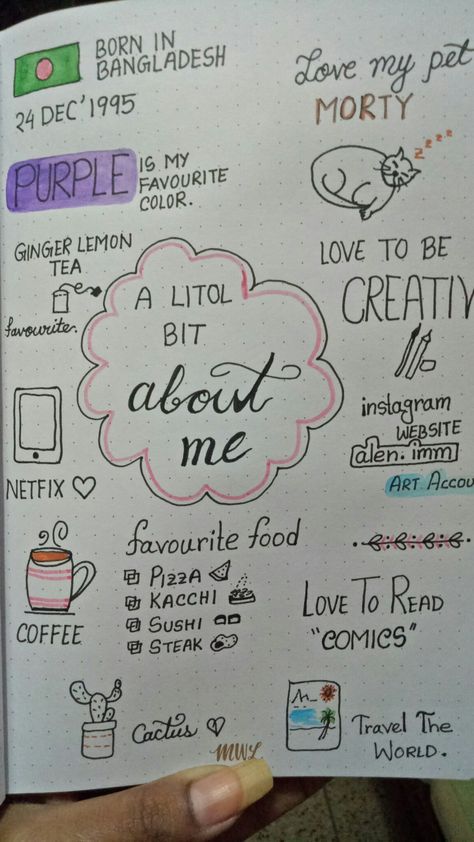 BORN IN
BANGLADESH
24 DEC'1995
Love my pet
MORTY
zzzzz
PURPLE
IS MY
FAVOURITE
COLOR.
GINGER LEMON
TEA
favourite.
A LITOL
BIT
about
me
LOVE TO BE
CREATIV
instagram
WEBSITE
alen.imm
ART ACCOU
NETFIX
COFFEE
favourite food
PIZZA
KACCHI
SUSHI
STEAK
LOVE TO READ
"COMICS"
Cactus
Travel The
World.